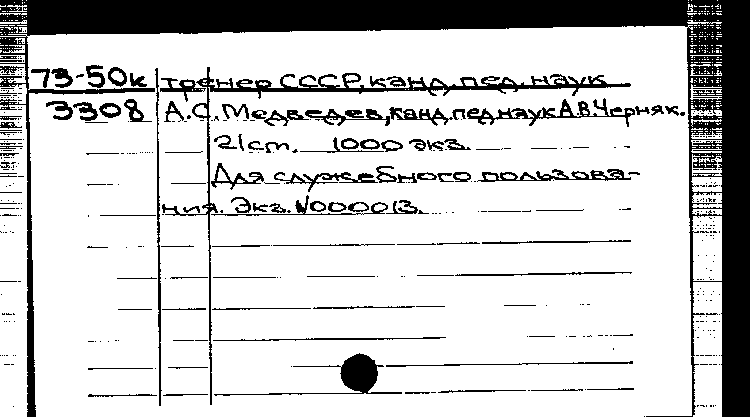 73-50к тренер СССР, канд. пед. наук
3308 А.С. Медведев, канд. пед. наук А.В. Черняк.
21 ст. 1000 экз.
Для служебного пользова-
ния. Экз. N000013.